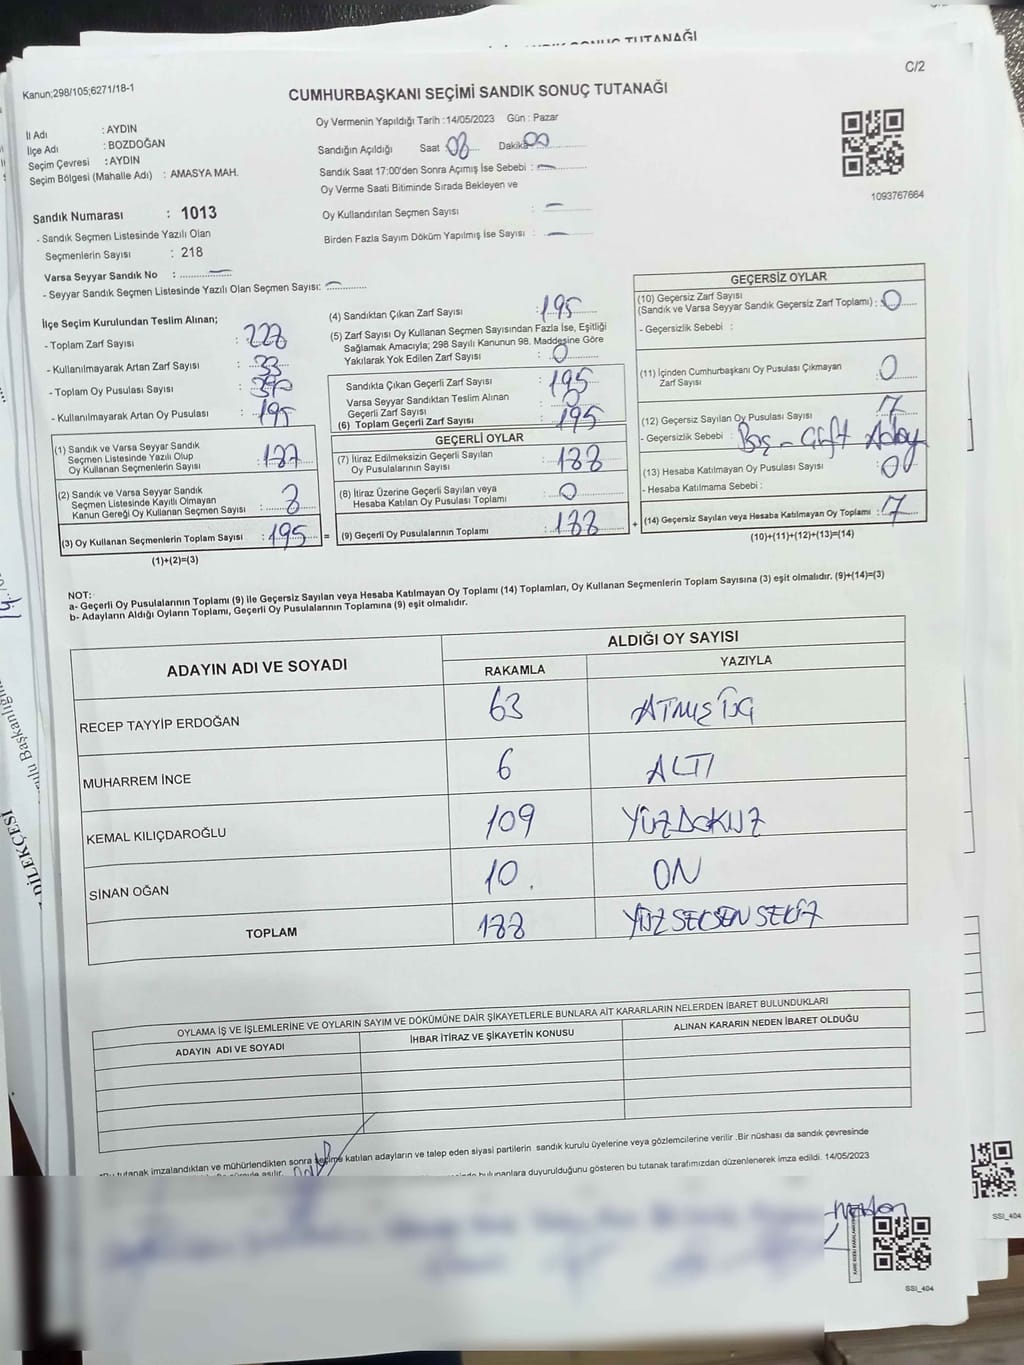 SONUÇ TUTANAĞI
Kanun;298/105;6271/18-1
C/2
CUMHURBAŞKANI SEÇİMİ SANDIK SONUÇ TUTANAĞI
İl Adı : AYDIN
İlçe Adı : BOZDOĞAN
Seçim Çevresi : AYDIN
Seçim Bölgesi (Mahalle Adı) : AMASYA MAH.
Oy Vermenin Yapıldığı Tarih :14/05/2023 Gün : Pazar
Sandığın Açıldığı Saat 08 Dakika 00
Sandık Saat 17:00'den Sonra Açımış İse Sebebi : —
Oy Verme Saati Bitiminde Sırada Bekleyen ve
Oy Kullandırılan Seçmen Sayısı : —
Birden Fazla Sayım Döküm Yapılmış İse Sayısı : —
1093767664
Sandık Numarası : 1013
- Sandık Seçmen Listesinde Yazılı Olan
Seçmenlerin Sayısı : 218
Varsa Seyyar Sandık No : —
- Seyyar Sandık Seçmen Listesinde Yazılı Olan Seçmen Sayısı: —
İlçe Seçim Kurulundan Teslim Alınan;
- Toplam Zarf Sayısı : 228
- Kullanılmayarak Artan Zarf Sayısı : 33
- Toplam Oy Pusulası Sayısı :
- Kullanılmayarak Artan Oy Pusulası : 195
(1) Sandık ve Varsa Seyyar Sandık
Seçmen Listesinde Yazılı Olup
Oy Kullanan Seçmenlerin Sayısı : 187
(2) Sandık ve Varsa Seyyar Sandık
Seçmen Listesinde Kayıtlı Olmayan
Kanun Gereği Oy Kullanan Seçmen Sayısı : 8
(3) Oy Kullanan Seçmenlerin Toplam Sayısı : 195
(1)+(2)=(3)
=
(4) Sandıktan Çıkan Zarf Sayısı : 195
(5) Zarf Sayısı Oy Kullanan Seçmen Sayısından Fazla İse, Eşitliği
Sağlamak Amacıyla; 298 Sayılı Kanunun 98. Maddesine Göre
Yakılarak Yok Edilen Zarf Sayısı : 0
Sandıkta Çıkan Geçerli Zarf Sayısı : 195
Varsa Seyyar Sandıktan Teslim Alınan
Geçerli Zarf Sayısı : 0
(6) Toplam Geçerli Zarf Sayısı : 195
GEÇERLİ OYLAR
(7) İtiraz Edilmeksizin Geçerli Sayılan
Oy Pusulalarının Sayısı : 188
(8) İtiraz Üzerine Geçerli Sayılan veya
Hesaba Katılan Oy Pusulası Toplamı : 0
(9) Geçerli Oy Pusulalarının Toplamı : 188
+
GEÇERSİZ OYLAR
(10) Geçersiz Zarf Sayısı
(Sandık ve Varsa Seyyar Sandık Geçersiz Zarf Toplamı) : 0
- Geçersizlik Sebebi :
(11) İçinden Cumhurbaşkanı Oy Pusulası Çıkmayan
Zarf Sayısı : 0
(12) Geçersiz Sayılan Oy Pusulası Sayısı : 7
- Geçersizlik Sebebi : Boş - Çift Aday
(13) Hesaba Katılmayan Oy Pusulası Sayısı : 0
- Hesaba Katılmama Sebebi :
(14) Geçersiz Sayılan veya Hesaba Katılmayan Oy Toplamı : 7
(10)+(11)+(12)+(13)=(14)
NOT:
a- Geçerli Oy Pusulalarının Toplamı (9) ile Geçersiz Sayılan veya Hesaba Katılmayan Oy Toplamı (14) Toplamları, Oy Kullanan Seçmenlerin Toplam Sayısına (3) eşit olmalıdır. (9)+(14)=(3)
b- Adayların Aldığı Oyların Toplamı, Geçerli Oy Pusulalarının Toplamına (9) eşit olmalıdır.
ADAYIN ADI VE SOYADI
ALDIĞI OY SAYISI
RAKAMLA YAZIYLA
RECEP TAYYİP ERDOĞAN 63 ATMIŞ ÜÇ
MUHARREM İNCE 6 ALTI
KEMAL KILIÇDAROĞLU 109 YÜZDOKUZ
SİNAN OĞAN 10. ON
TOPLAM 188 YÜZ SEKSEN SEKİZ
OYLAMA İŞ VE İŞLEMLERİNE VE OYLARIN SAYIM VE DÖKÜMÜNE DAİR ŞİKAYETLERLE BUNLARA AİT KARARLARIN NELERDEN İBARET BULUNDUKLARI
ADAYIN ADI VE SOYADI İHBAR İTİRAZ VE ŞİKAYETİN KONUSU ALINAN KARARIN NEDEN İBARET OLDUĞU
tutanak imzalandıktan ve mühürlendikten sonra seçime katılan adayların ve talep eden siyasi partilerin sandık kurulu üyelerine veya gözlemcilerine verilir .Bir nüshası da sandık çevresinde
bulunanlara duyurulduğunu gösteren bu tutanak tarafımızdan düzenlenerek imza edildi. 14/05/2023
SSİ_404
SSİ_404
DİLEKÇESİ